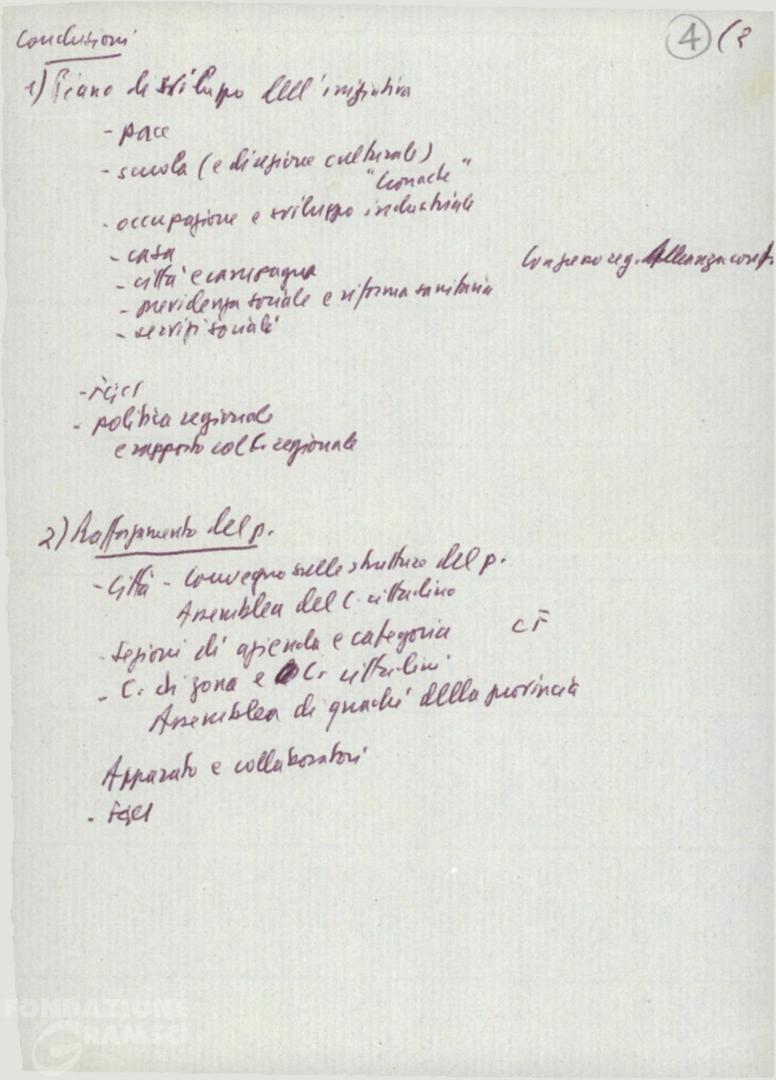 4 (3
Conclusioni
1) Piano di sviluppo dell'iniziativa
- pace
- scuola (e direzione culturale)
"Cronache"
- occupazione e sviluppo industriale
- casa
- città e campagna
Convegno reg. Alleanza
- previdenza sociale e riforma sanitaria
- servizi sociali
- FGCI
- politica regionale
e rapporto col C. regionale
2) Rafforzamento del p.
- Città - Convegno sulle strutture del p.
Assemblea del C. cittadino
- Sezioni di azienda e categoria CF
- C. di zona e C. cittadini
Assemblea di quadri della provincia
Apparato e collaboratori
- FGCI
FONDAZIONE
GRAMSCI